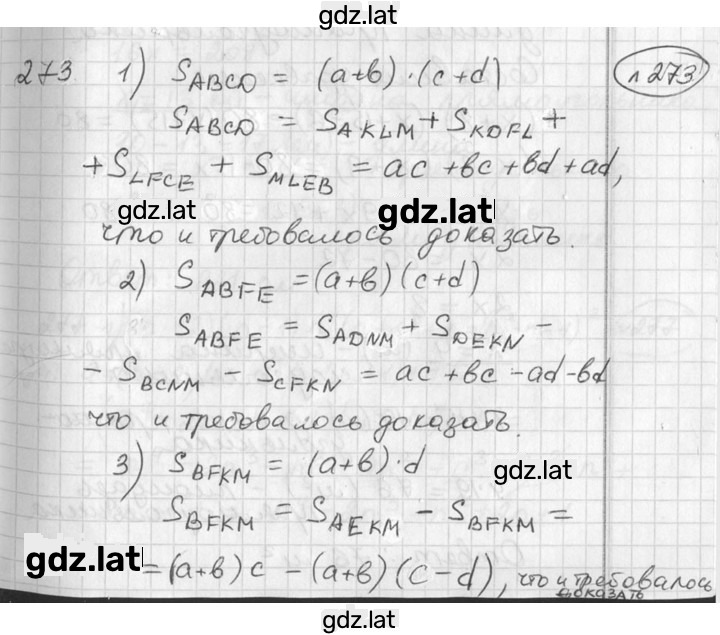 gdz.lat
273 1) S_ABCD = (a+b)·(c+d) n 273
S_ABCD = S_AKLM + S_KDFL +
+ S_LFCE + S_MLEB = ac + bc + bd + ad,
gdz.lat gdz.lat
что и требовалось доказать.
2) S_ABFE = (a+b)(c+d)
S_ABFE = S_ADNM + S_DEKN –
– S_BCNM – S_CFKN = ac + bc – ad – bd
что и требовалось доказать.
3) S_BFKM = (a+b)·d gdz.lat
S_BFKM = S_AEKM – S_BFKM =
gdz.lat = (a+b)c – (a+b)(c–d), что и требовалось
доказать
gdz.lat